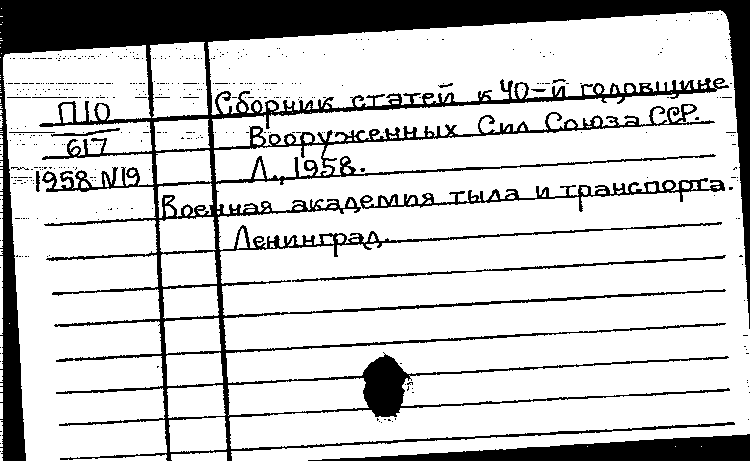 П10
617
1958 N19
Сборник статей к 40-й годовщине
Вооруженных Сил Союза ССР.
Л., 1958.
Военная академия тыла и транспорта.
Ленинград.